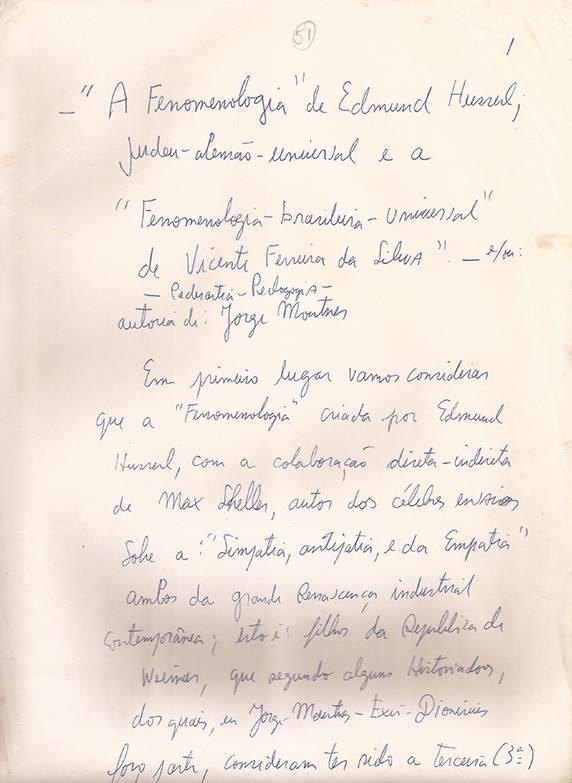 51
1
—" A Fenomenologia" de Edmund Husserl;
judeu-alemão-universal e a
"Fenomenologia-brasileira-universal"
de Vicente Ferreira da Silva". — e/ou:
— Pederastia-Pedagogia —
autoria de: Jorge Mautner
Em primeiro lugar vamos considerar
que a "Fenomenologia" criada por Edmund
Husserl, com a colaboração direta-indireta
de Max Sheller, autor dos célebres ensaios
sobre a: "Simpatia, antipatia, e da Empatia"
ambos da grande Renascença industrial
contemporânea; isto é: filhos da Republica de
Weimar, que segundo alguns Historiadores,
dos quais, eu Jorge-Mautner-Exú-Dionísius
faço parte, consideram ter sido a terceira (3ª)